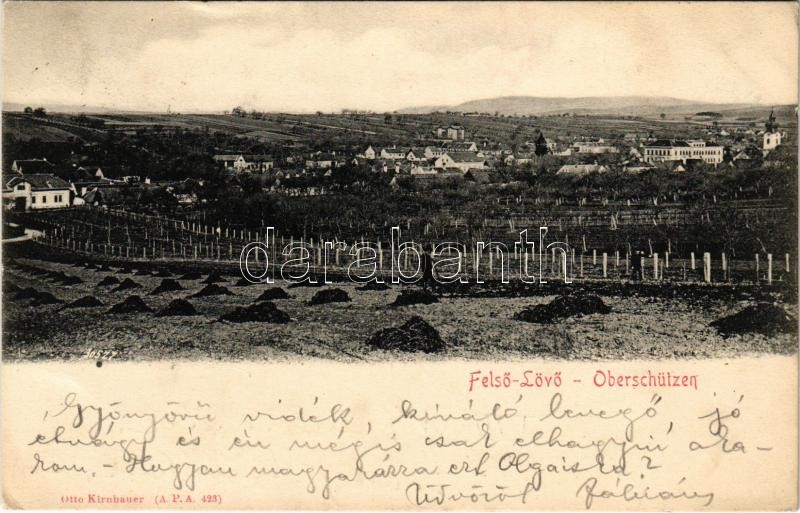 darabanth
Felső-Lövő – Oberschützen
Gyönyörű vidék, kiváló levegő, jó
étvágy és én mégis csak elhagyni aka-
rom. – Hogyan magyarázza ezt Olgaiska?
Üdvözöl
Otto Kirnbauer (A. P. A. 423)